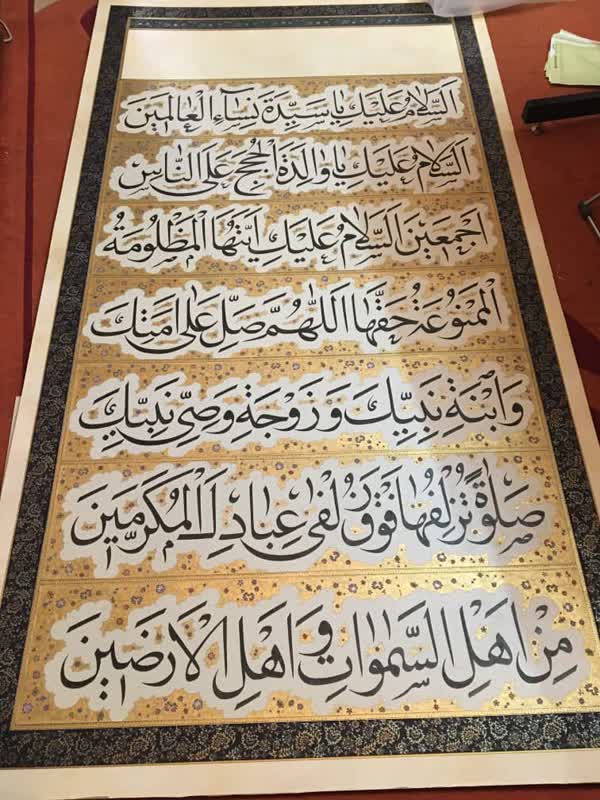 اَلسَّلامُ عَلَيْكِ يا سَيِّدَةَ نِسآءِ الْعالَمينَ
اَلسَّلامُ عَلَيْكِ يا والِدَةَ الْحُجَجِ عَلَى النّاسِ
اَجْمَعينَ اَلسَّلامُ عَلَيْكِ اَيَّتُهَا الْمَظْلُومَةُ
الْمَمْنُوعَةُ حَقُّها اَللّهُمَّ صَلِّ عَلى اَمَتِكَ
وَابْنَةِ نَبِيِّكَ وَزَوْجَةِ وَصِىِّ نَبِيِّكَ
صَلوةً تُزْلِفُها فَوْقَ زُلْفى عِبادِكَ الْمُكَرَّمينَ
مِنْ اَهْلِ السَّمواتِ وَاَهْلِ الْاَرَضينَ